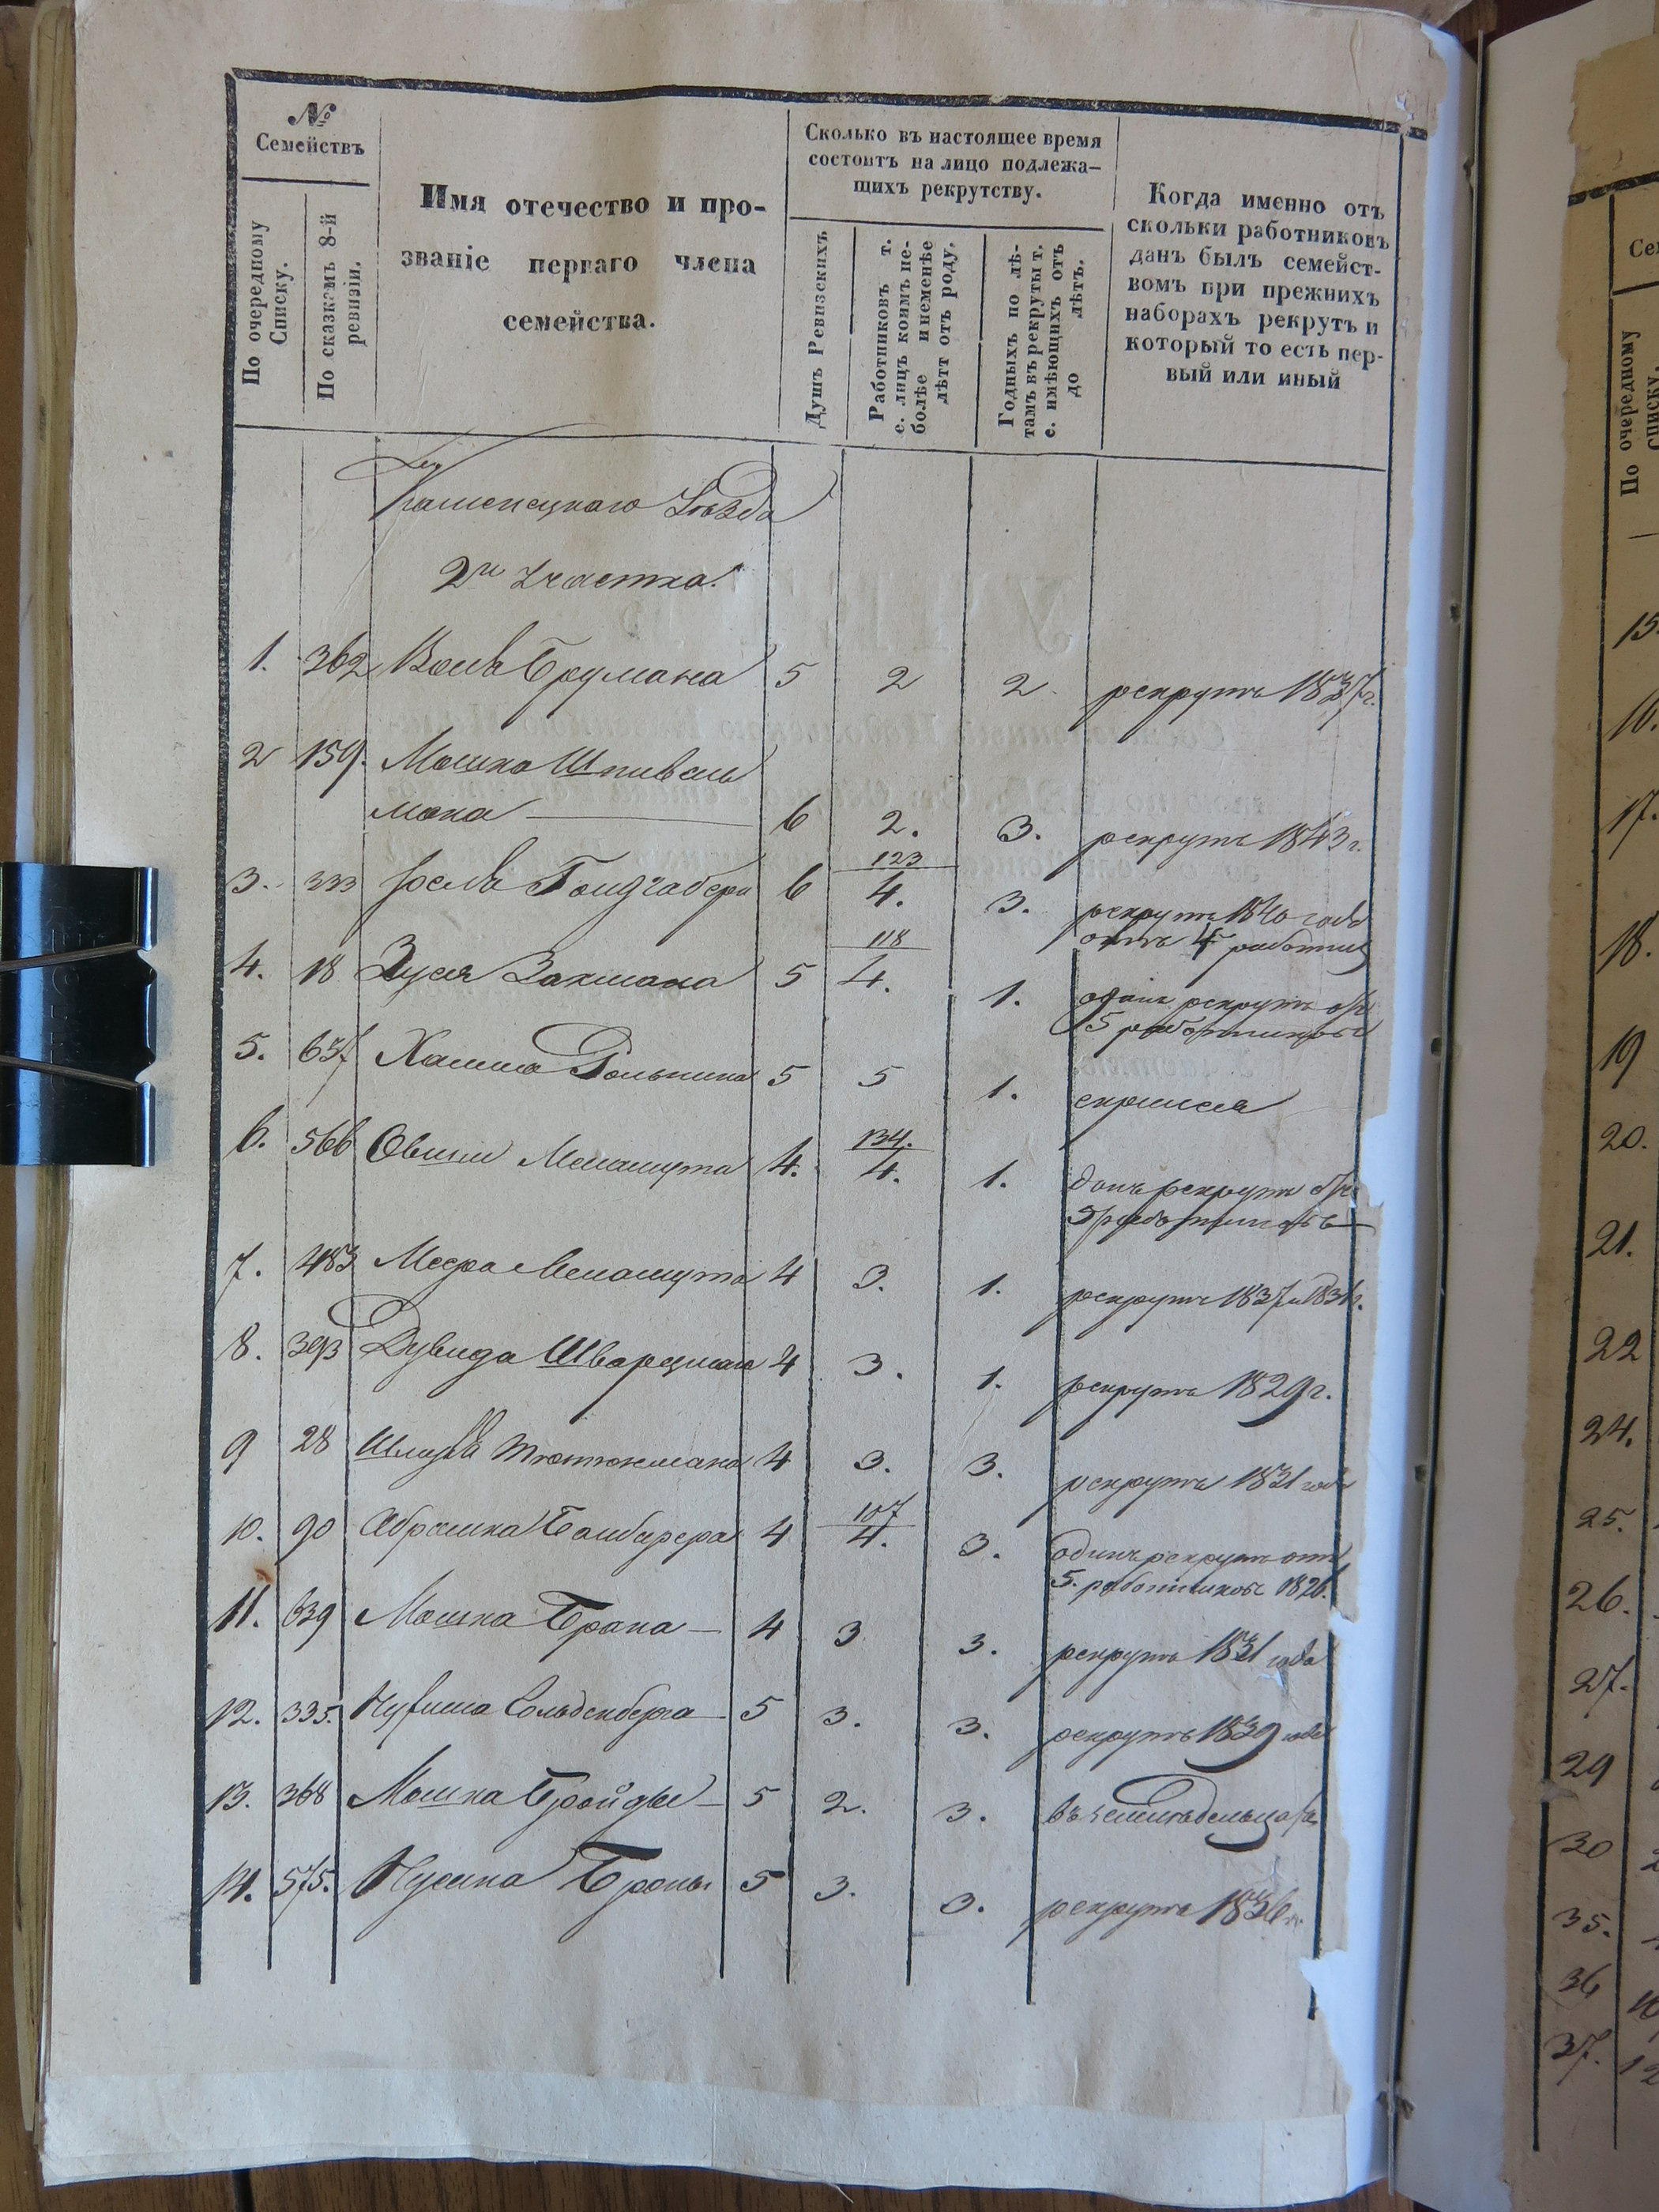 №
Семействъ
По очередному
Списку.
По сказкамъ 8-й
ревизіи.
Имя отечество и про-
званіе перваго члена
семейства.
Сколько въ настоящее время
состоитъ на лицо подлежа-
щихъ рекрутству.
Душъ Ревизскихъ
Работниковъ т.
е. лицъ коимъ не-
болѣе и неменѣе
лѣтъ отъ роду.
Годныхъ по лѣ-
тамъ въ рекруты т.
е. имѣющихъ отъ
до лѣтъ.
Когда именно отъ
скольки работниковъ
данъ былъ семейст-
вомъ при прежнихъ
наборахъ рекрутъ и
который то есть пер-
вый или иный
Каменецкаго Уѣзда
2го Участка.
1. 362 Брумана 5 2 2 рекрутъ 1837г.
2 159. Мошка Шпивель
мана 6 2. 3. рекрутъ 1843 г.
3. 333 6 123 4. 3. рекрутъ 1840 года
отъ 4 работник
4. 18 Зуся Вакмана 5 118 4. 1. одинъ рекрутъ отъ
5 работниковъ
5. 637 Хаима 5 5 1. скрылся
6. 566 Овшии 4. 134. 4. 1. данъ рекрутъ отъ
5 работниковъ
7. 483 Меера 4 3. 1. рекрутъ 1837 и 1831г.
8. 393 Дувида Шварцмана 4 3. 1. рекрутъ 1829 г.
9 28 Тютюнмана 4 3. 3. рекрутъ 1831 года
10. 90 Абрамка 4 107 4. 3. одинъ рекрутъ отъ
5. работниковъ 1828
11. 639 Мошка Брана 4 3 3. рекрутъ 1831 года
12. 335. Нухима Гольденберга 5 3. 3. рекрутъ 1839 года
13. 368 Мошка Бройде 5 2. 3. въ земледельцахъ
14. 575. Нусина Броны 5 3. 3. рекрутъ
Се
По очередному
Списку.
15.
16.
17.
18.
19
20.
21.
22
24.
25.
26.
27.
29
30
35.
36
37.